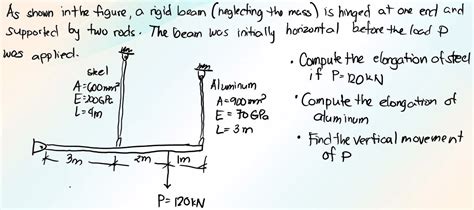 As shown in the figure, a rigid beam (neglecting the mass) is hinged at one end and
supported by two rods. The beam was initially horizontal before the load P
was applied.
steel
A=600mm²
E=200GPa
L=4m
Aluminum
A=900mm²
E = 70GPa
L= 3m
3m
2m
1m
P= 120KN
• Compute the elongation of steel
if P=120KN
• Compute the elongation of
aluminum
• Find the vertical movement
of P